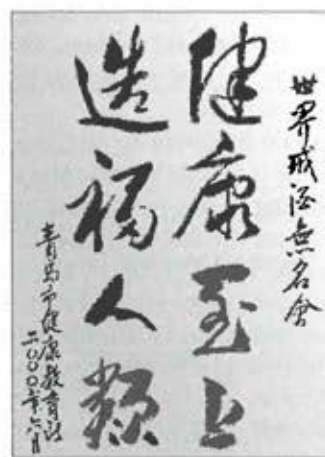 世界戒酒無名會
健康至上
造福人類
青島市健康教育所
二〇〇〇年六月